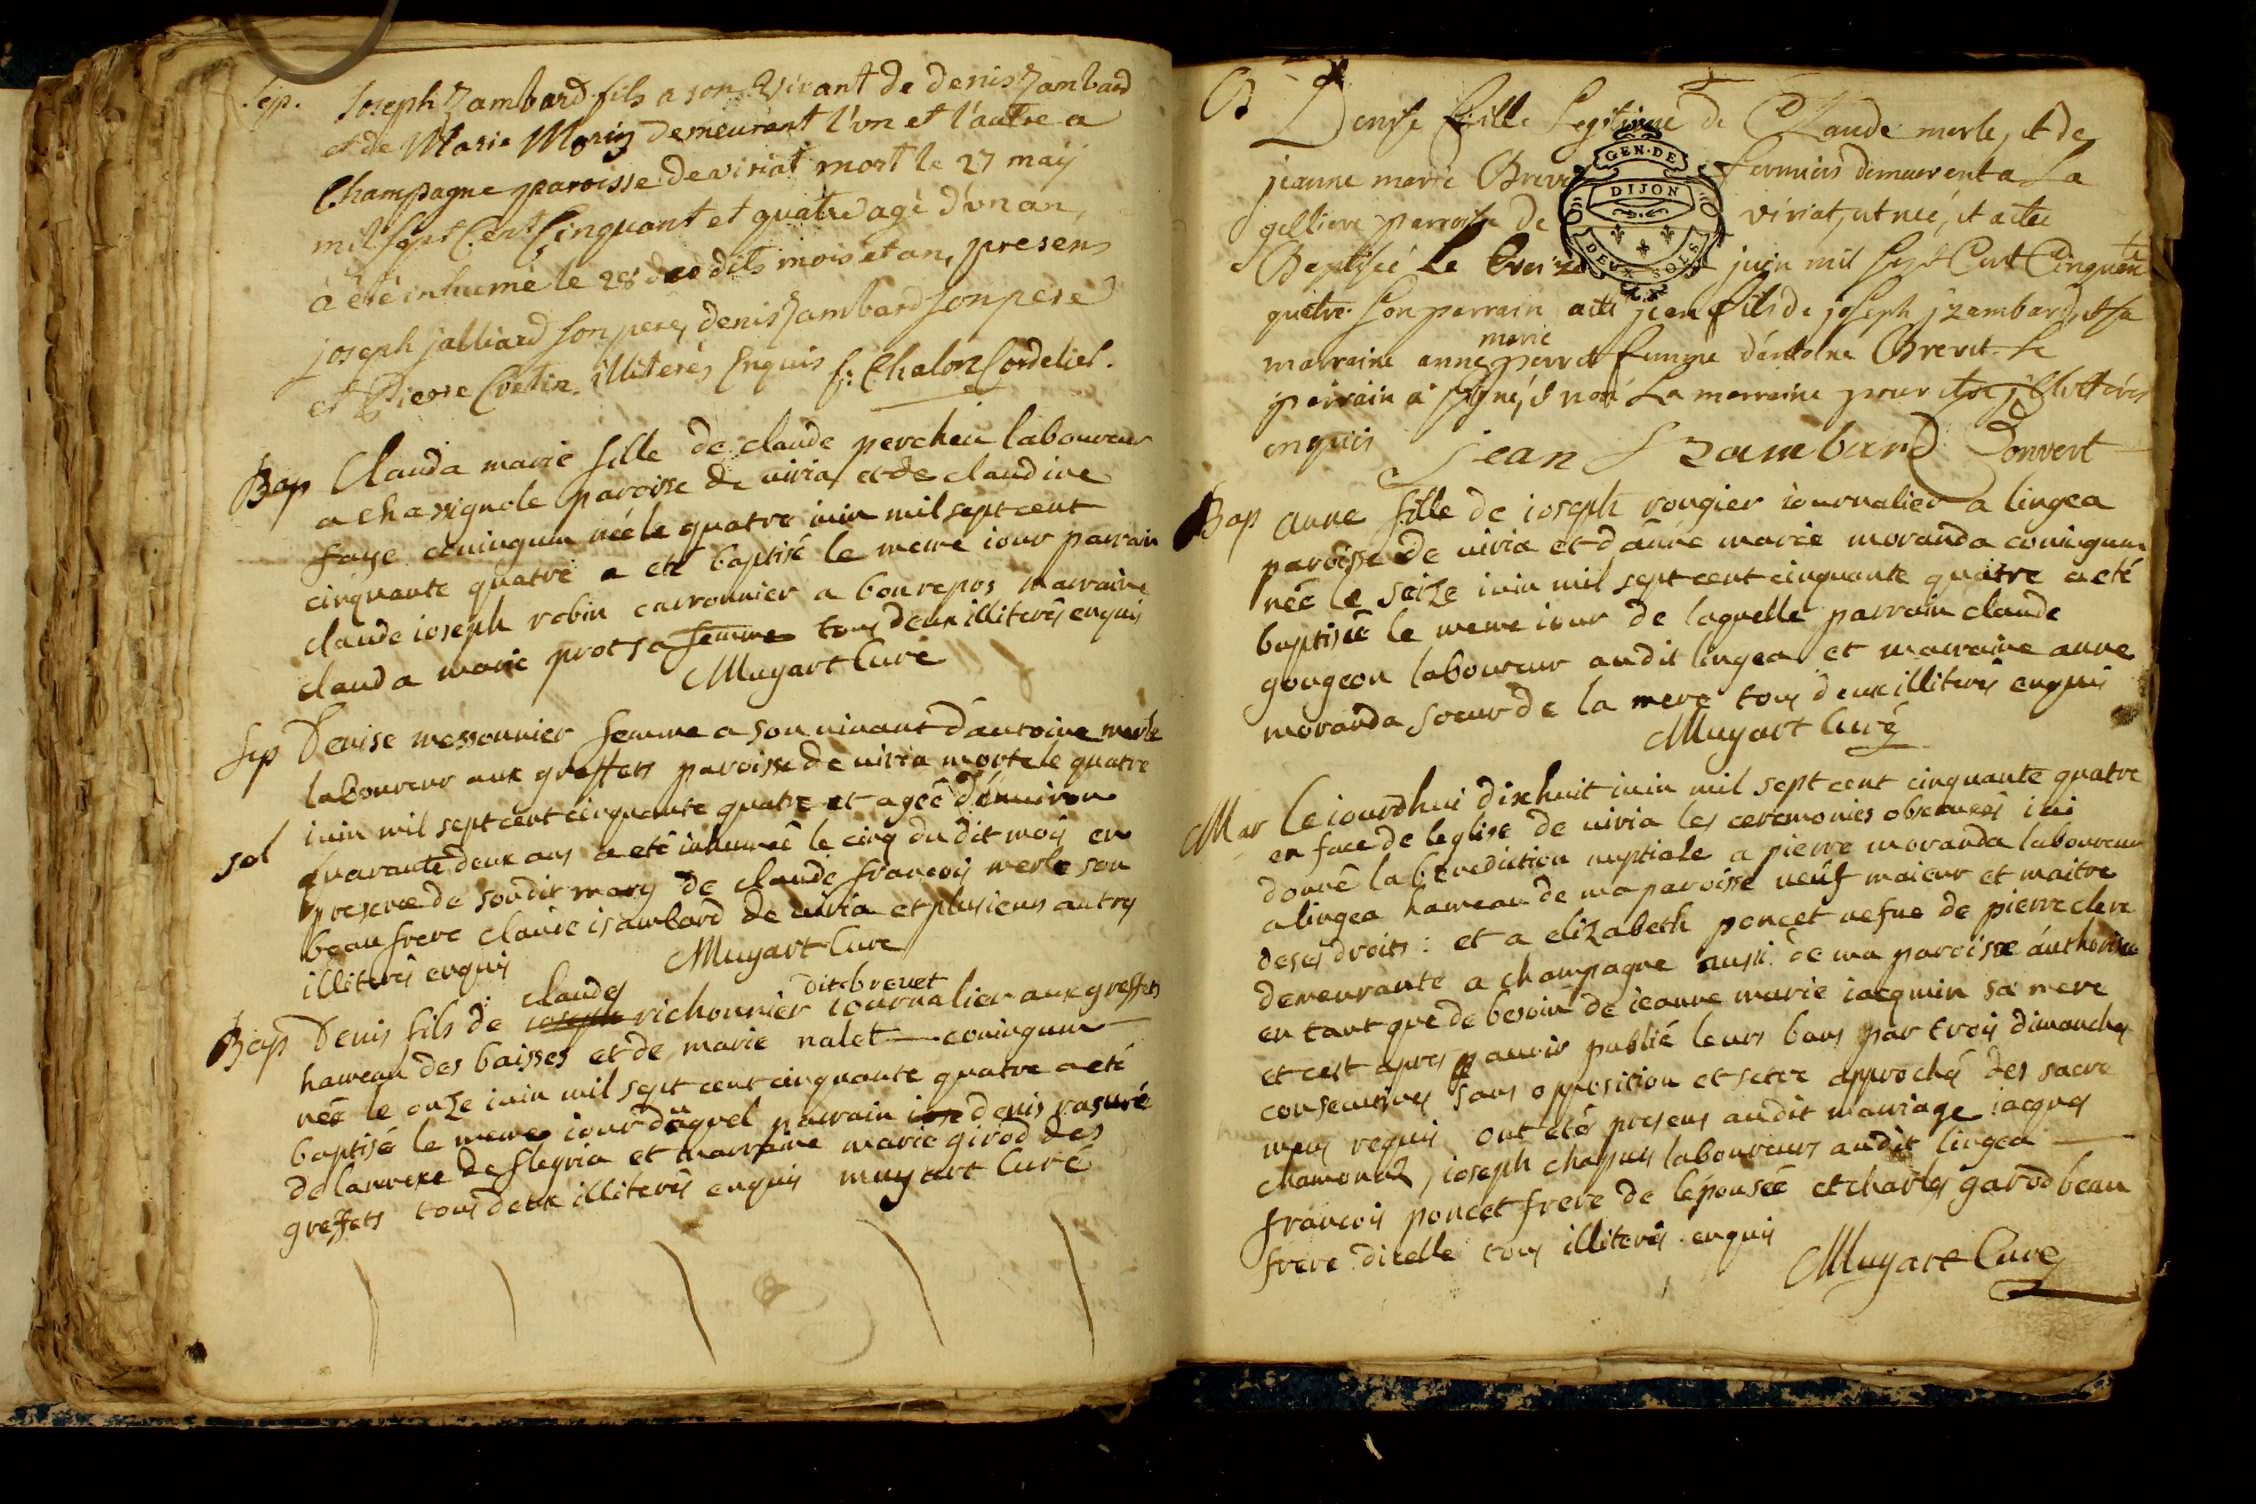 Sep. Joseph Jzambard fils a son vivant de denis Jzambard
et de Marie Morin demeurant l'un et l'autre a
Champagne paroisse de viriat mort le 27 maÿ
mil Sept Cent Cinquant et quatre agé d'un an,
a été inhumé le 28 des dits mois et an, presens
joseph jalliard son pere, denis Jzambard son pere
et Pierre Cretin illiterés Enquis f: Chalon Cordelier.
Bap Clauda marie fille de claude percheu laboureur
a chavignole paroisse de viria et de claudine
faye coniugum née le quatre iuin mil sept cent
cinquante quatre a eté baptisé le meme iour parrain
claude ioseph robin carronnier a bonrepos marraine
clauda marie prost sa femme tous deux illiterés enquis
Muyart Curé
Sep Denise messonnier femme a son vivant d'antoine merle
laboureur aux greffets paroisse de viria morte le quatre
iuin mil sept cent cinquante quatre et agée d'environ
sol quarante deux ans a eté inhumée le cinq du dit mois en
presence de son dit mary de claude francois merle son
beau frere claude isambard de viria et plusieurs autres
illiterés enquis Muyart Cure
Bap Denis fils de ioseph claudes richonnier dit brevet iournalier aux greffets
hameau des baisses et de marie nalet coniugum
née le onze iuin mil sept cent cinquante quatre a eté
baptisé le meme iour duquel parrain iose denis rasuré
de lanrere de flegria et marraine marie girod des
greffets tous deux illiterés enquis muyart Curé
B Denise fille Legitime de Claude merle, et de
jeanne marie Brevet fermiers demeurent a La
gelliere parroisse de viriat, et neé, et a eté
Baptiseé Le treize juin mil Sept Cent Cinquante
quatre. Son parrain a eté jean fils de joseph jzambard, et sa
marraine anne marie perret femme d'antoine Brevet. Le
parrain a signé, et non La marraine pour etre illetterés
enquis Jean Jzambard Convert
Bap anne fille de ioseph rougier iournalier a lingea
paroisse de viria et d'anne marie moranda coniugum
née le seize iuin mil sept cent cinquante quatre a eté
baptisée le meme iour de laquelle parrain claude
gougeon laboureur audit lingea et marraine anne
moranda soeur de la mere tous deux illiterés enquis
Muyart Curé
Mar Ce iourdhui dixhuit iuin mil sept cent cinquante quatre
en face de leglise de viria les ceremonies observées iai
donné la benediction nuptiale a pierre moranda laboureur
a lingea hameau de ma paroisse neuf maieur et maitre
de ses droits: et a elizabeth poncet vefue de pierre clere
demeurante a champagne aussi de ma paroisse authorisée
en tant que de besoin de ieanne marie iacquin sa mere
et cest apres avoir publié leurs bans par trois dimanches
consecutives sans opposition et setre approché des sacre
mens requis ont etés presens audit mariage iacques
chamonal, ioseph chapuis laboureurs audit lingea
francois poncet frere de lepousée et charles garod beau
frere dicelle tous illiterés enquis
Muyart Cure
GEN. DE
DIJON
DEUX SOLS